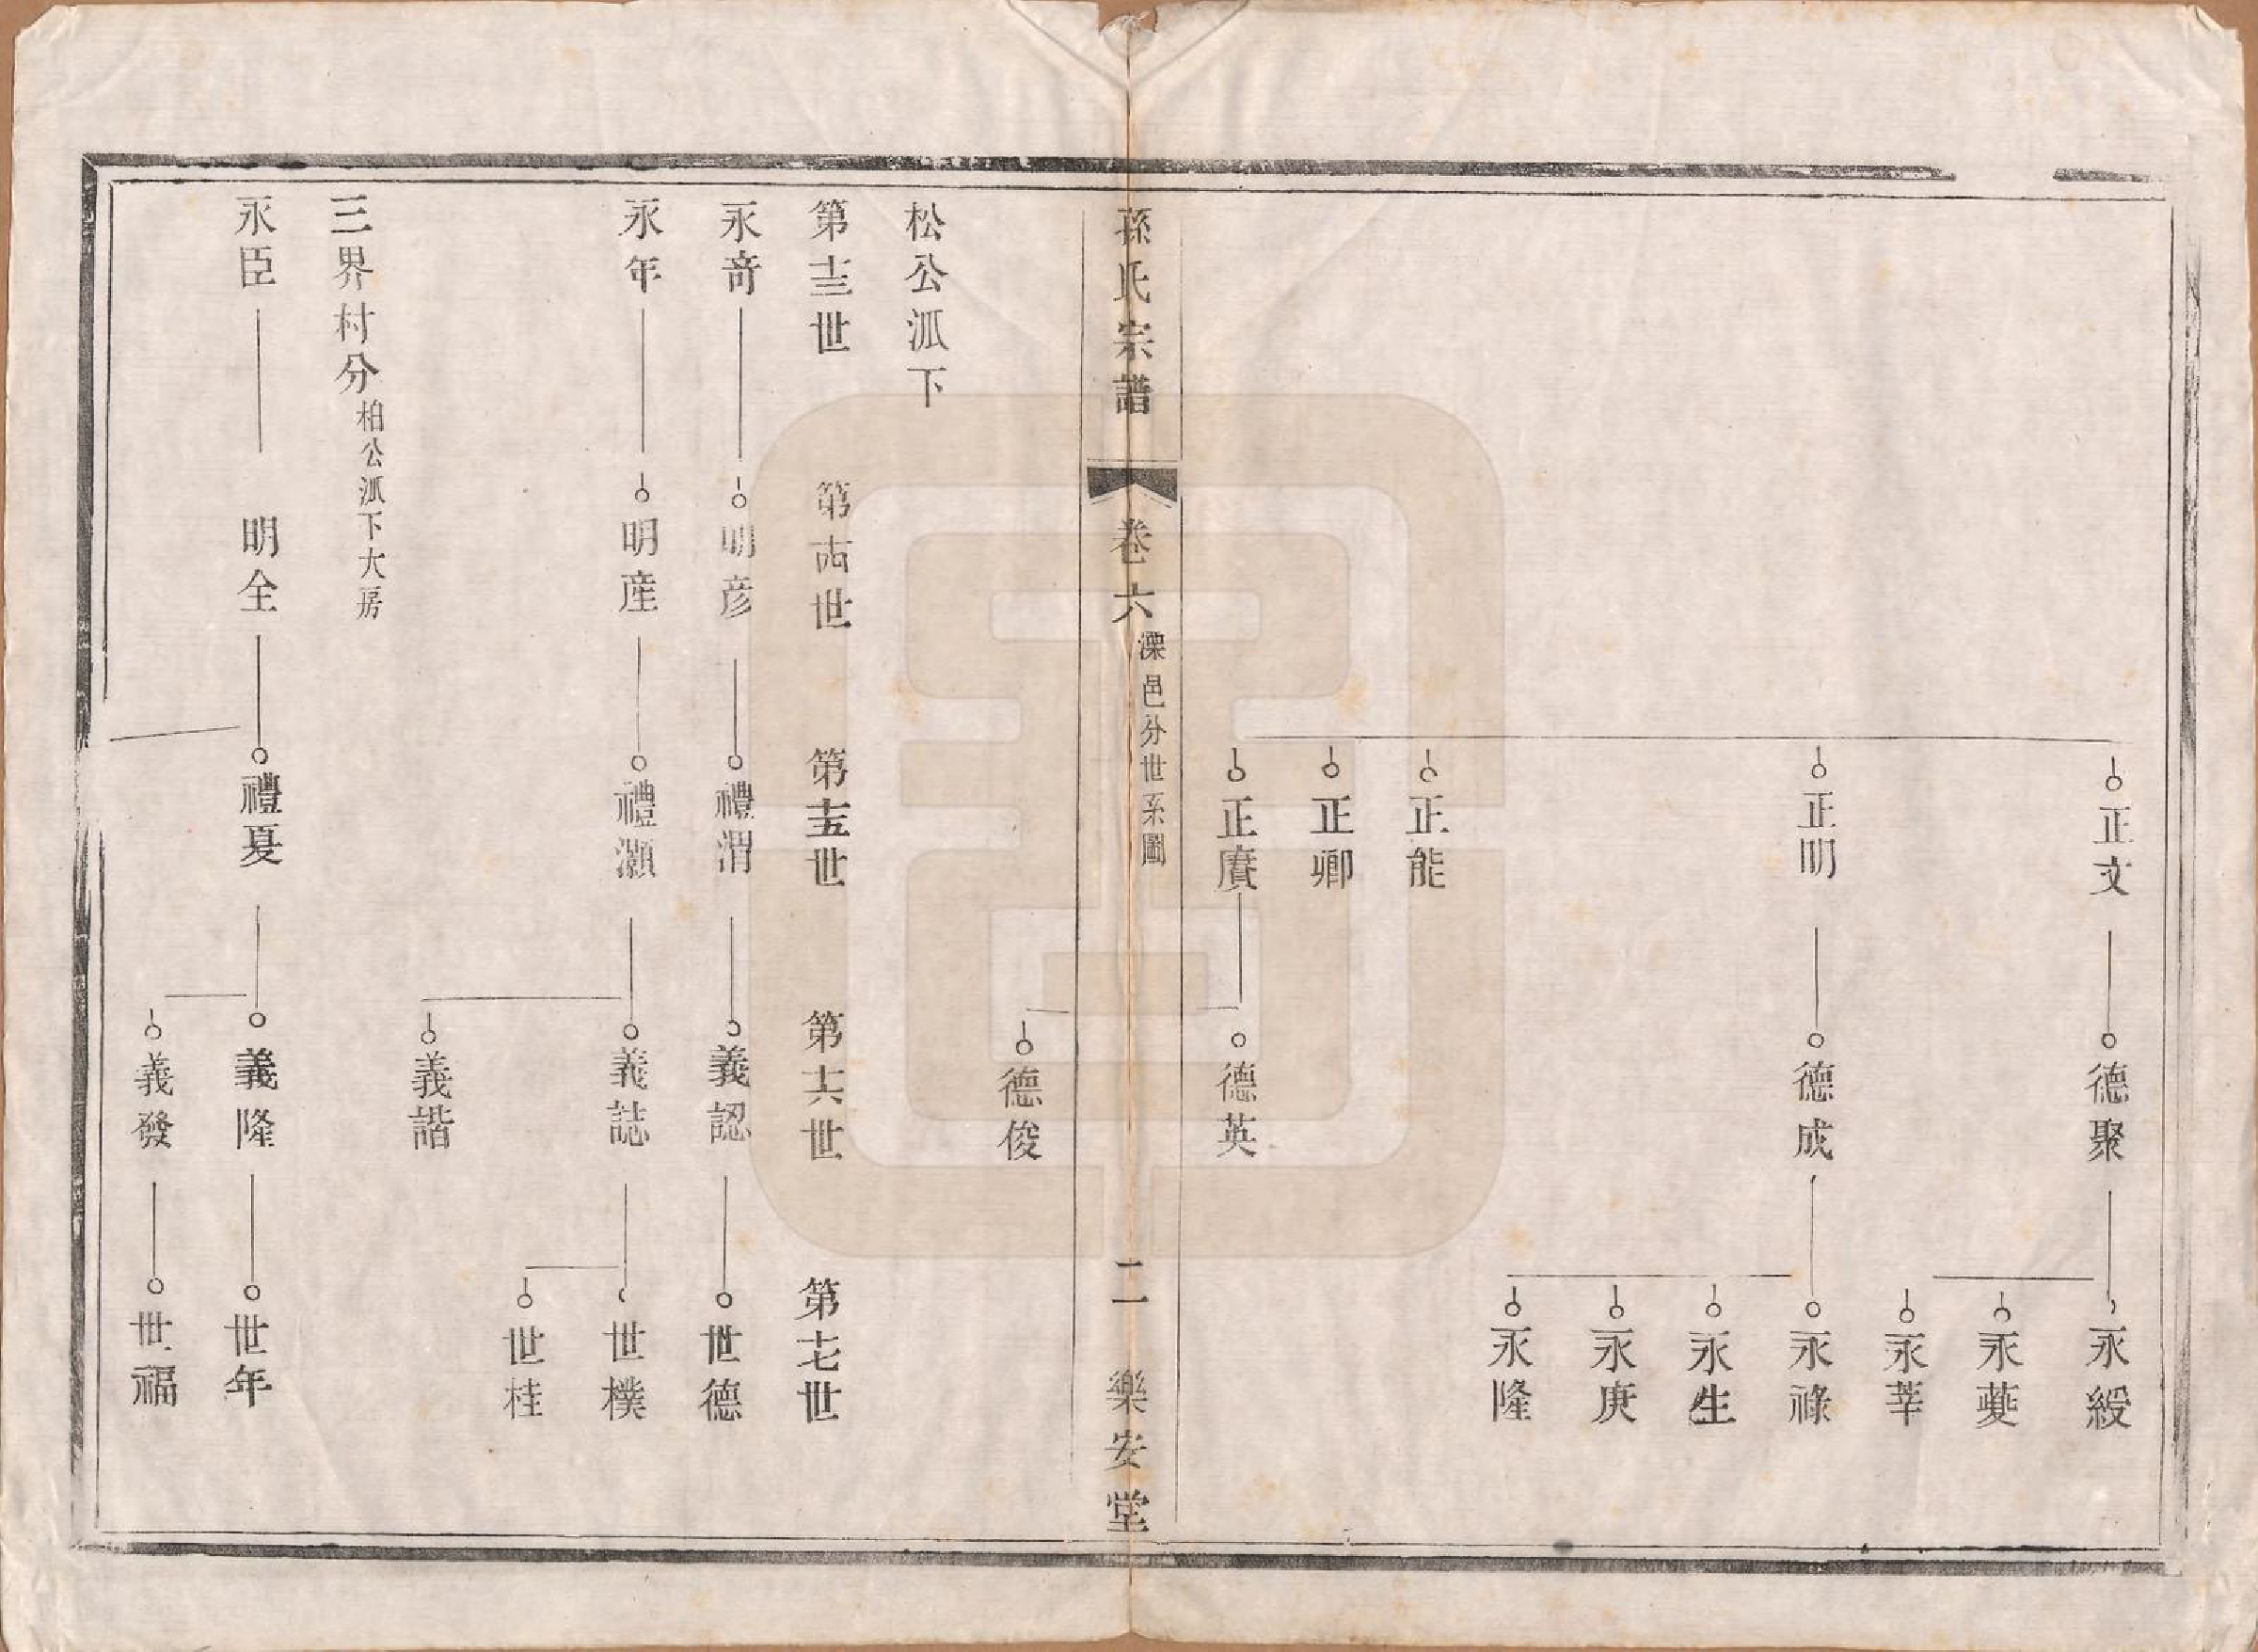 正文
德聚
永綬
永䕫
永莘
正明
德成
永祿
永生
永庚
永隆
正能
正卿
正賡
德英
孫氏宗譜
卷六
溧邑分世系圖
二
樂安堂
德俊
松公派下
第十三世
第十四世
第十五世
第十六世
第十七世
永奇
明彦
禮渭
義認
世德
永年
明産
禮灝
義誌
世樸
世桂
義諧
三界村分
柏公派下大房
永臣
明全
禮夏
義隆
世年
義發
世福